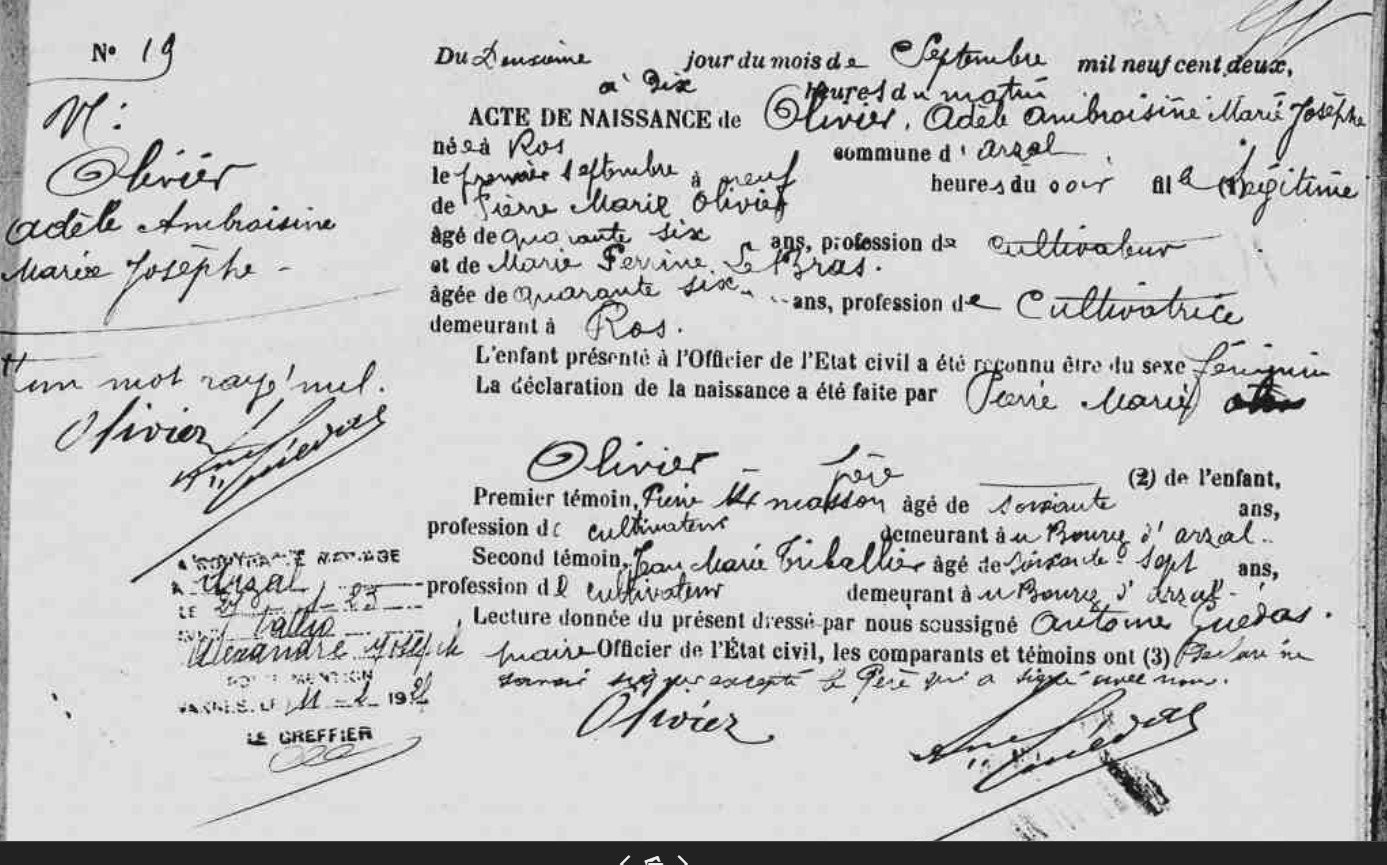 N° 19
N:
Olivier
Adèle Ambroisine
Marie Josèphe -
un mot rayé nul.
Olivier
Guédas
A CONTRACTÉ MARIAGE
A Arzal
LE
Alexandre Joseph
DONT MENTION
VANNES, LE 11 - 2 - 192
LE GREFFIER
Du Deuxième jour du mois de Septembre mil neuf cent deux,
à Dix heures du matin
ACTE DE NAISSANCE de Olivier, Adèle Ambroisine Marie Josèphe
née à Ros commune d'Arzal
le premier septembre à neuf heures du soir fille (1) légitime
de Pierre Marie Olivier
âgé de quarante six ans, profession de cultivateur
et de Marie Perrine Le Bras.
âgée de quarante six ans, profession de Cultivatrice
demeurant à Ros.
L'enfant présenté à l'Officier de l'Etat civil a été reconnu être du sexe féminin
La déclaration de la naissance a été faite par Pierre Marie
Olivier - père (2) de l'enfant,
Premier témoin, Pierre masson âgé de soixante ans,
profession de cultivateur demeurant à u Bourg d'arzal.
Second témoin, Jean Marie Triballier âgé de soixante-sept ans,
profession de cultivateur demeurant à u Bourg d'arzal -
Lecture donnée du présent dressé par nous soussigné Antoine Guédas.
maire Officier de l'État civil, les comparants et témoins ont (3) Déclaré ne
savoir signer excepté le Père qui a signé avec nous.
Olivier
Guédas